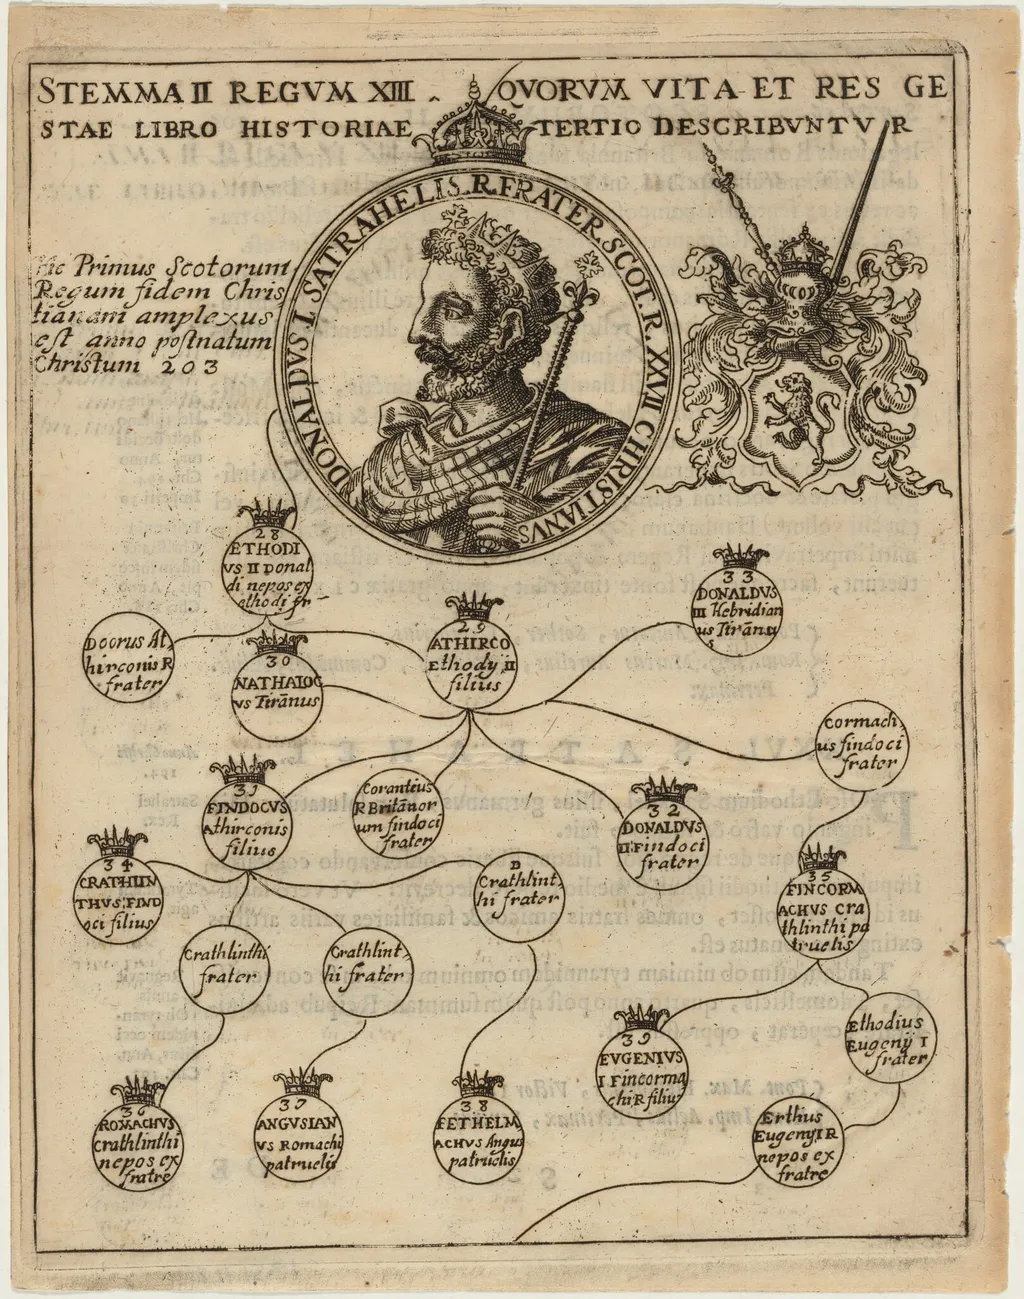 STEMMA II REGVM XIII QVORVM VITA ET RES GE
STAE LIBRO HISTORIAE TERTIO DESCRIBVNTVR
DONALDVS.I. SATRAHELIS.R.FRATER.SCOT.R.XXVII CHRISTIANVS
Hic Primus Scotorum
Regum fidem Chris
tianam amplexus
est anno postnatum
Christum 203
28
ETHODI
VS II Donal
di nepos ex
ethodi fr
Doorus At,
hirconis R
frater
30
NATHALOC
VS Tirānus
29
ATHIRCO
Ethody II
filius
33
DONALDVS
III Hebridian
us Tirānu
s
Cormach,
us findoci
frater
31
FINDOCVS
Athirconis
filius
Coranteus
R Britānor
um findoci
frater
32
DONALDVS
II Findoci
frater
34
CRATHLIN
THVS FIND
oci filius
Crathlint,
hi frater
35
FINCORM
ACHVS Cra
thlinthi pa
truelis
Crathlinthi
frater
Crathlint,
hi frater
39
EVGENIVS
I Fincorma
chi R filius
Ethodius
Eugenij I
frater
36
ROMACHVS
Crathlinthi
nepos ex
fratre
37
ANGVSIAN
VS Romachi
patruelis
38
FETHELM
ACHVS Angus
patruelis
Erthius
Eugenij I R
nepos ex
fratre